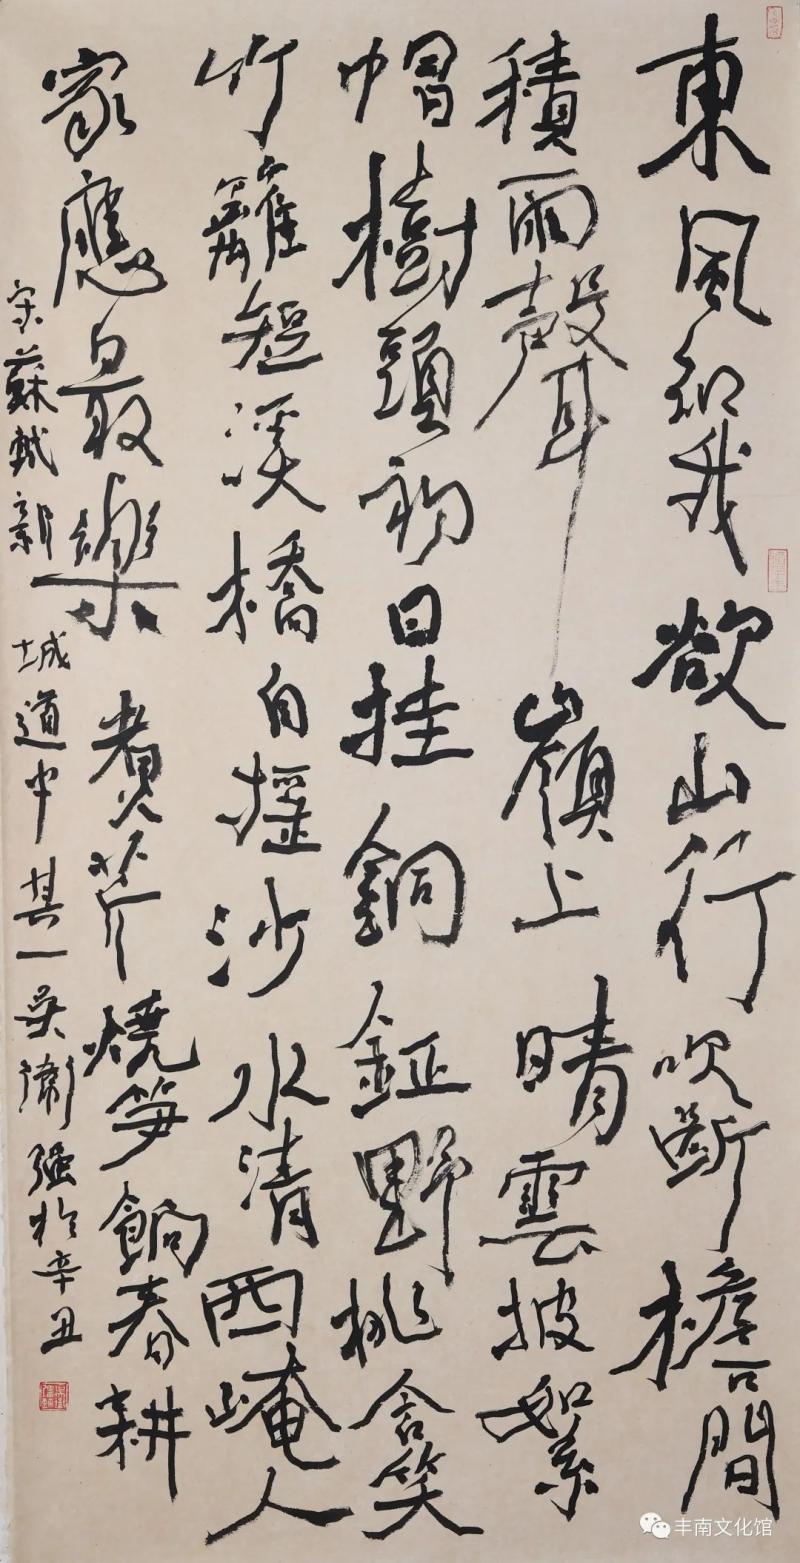 東風知我欲山行吹斷檐間
積雨聲嶺上晴雲披絮
帽樹頭初日挂銅鉦野桃含笑
竹籬短溪橋自摇沙水清西崦人
家應最樂煮芹燒笋餉春耕
宋蘇軾新城道中其一吳衛强於辛丑
丰南文化馆